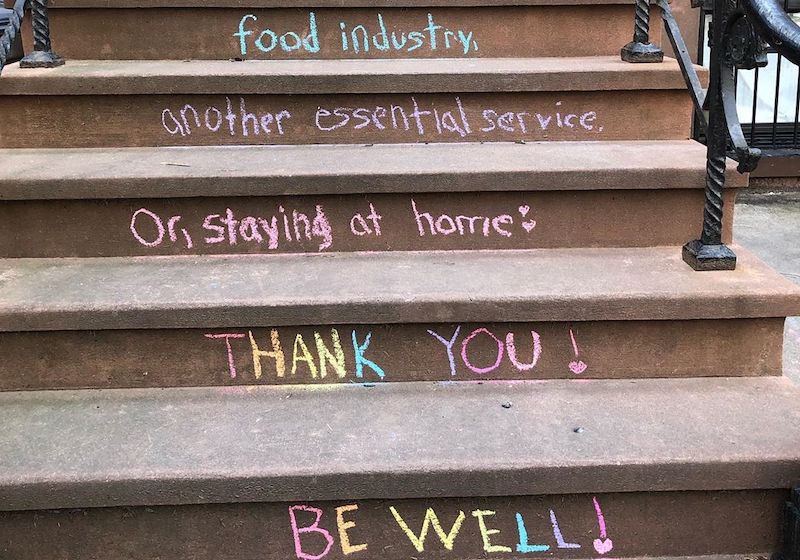 food industry,
another essential service.
Or, staying at home
THANK YOU!
BE WELL!